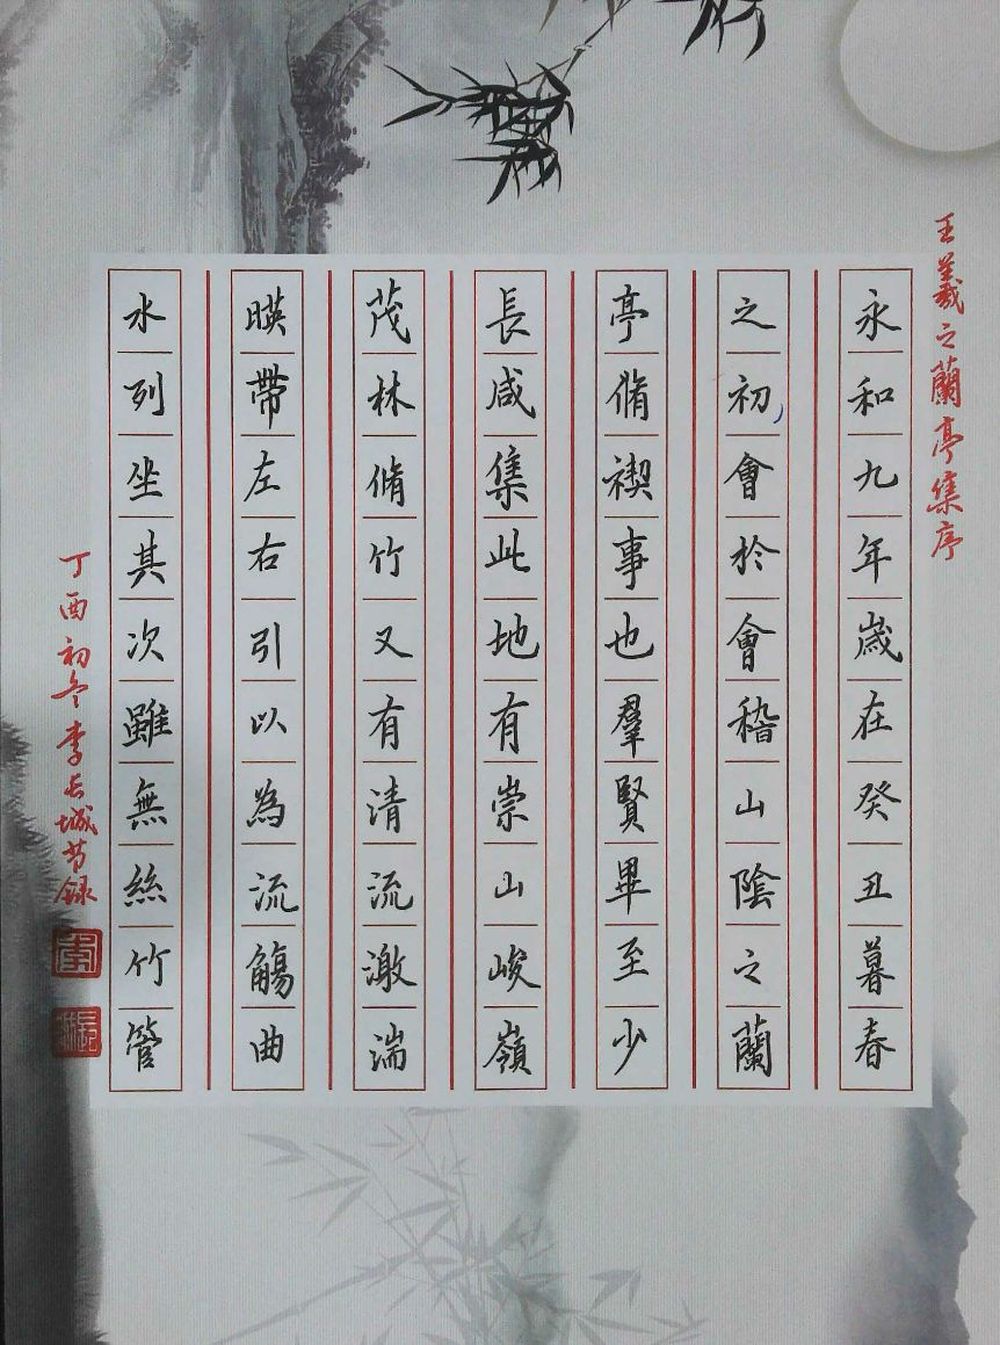 王羲之蘭亭集序
永和九年歲在癸丑暮春
之初會於會稽山陰之蘭
亭脩禊事也羣賢畢至少
長咸集此地有崇山峻嶺
茂林脩竹又有清流激湍
暎帶左右引以為流觴曲
水列坐其次雖無絲竹管
丁酉初冬李长城节録